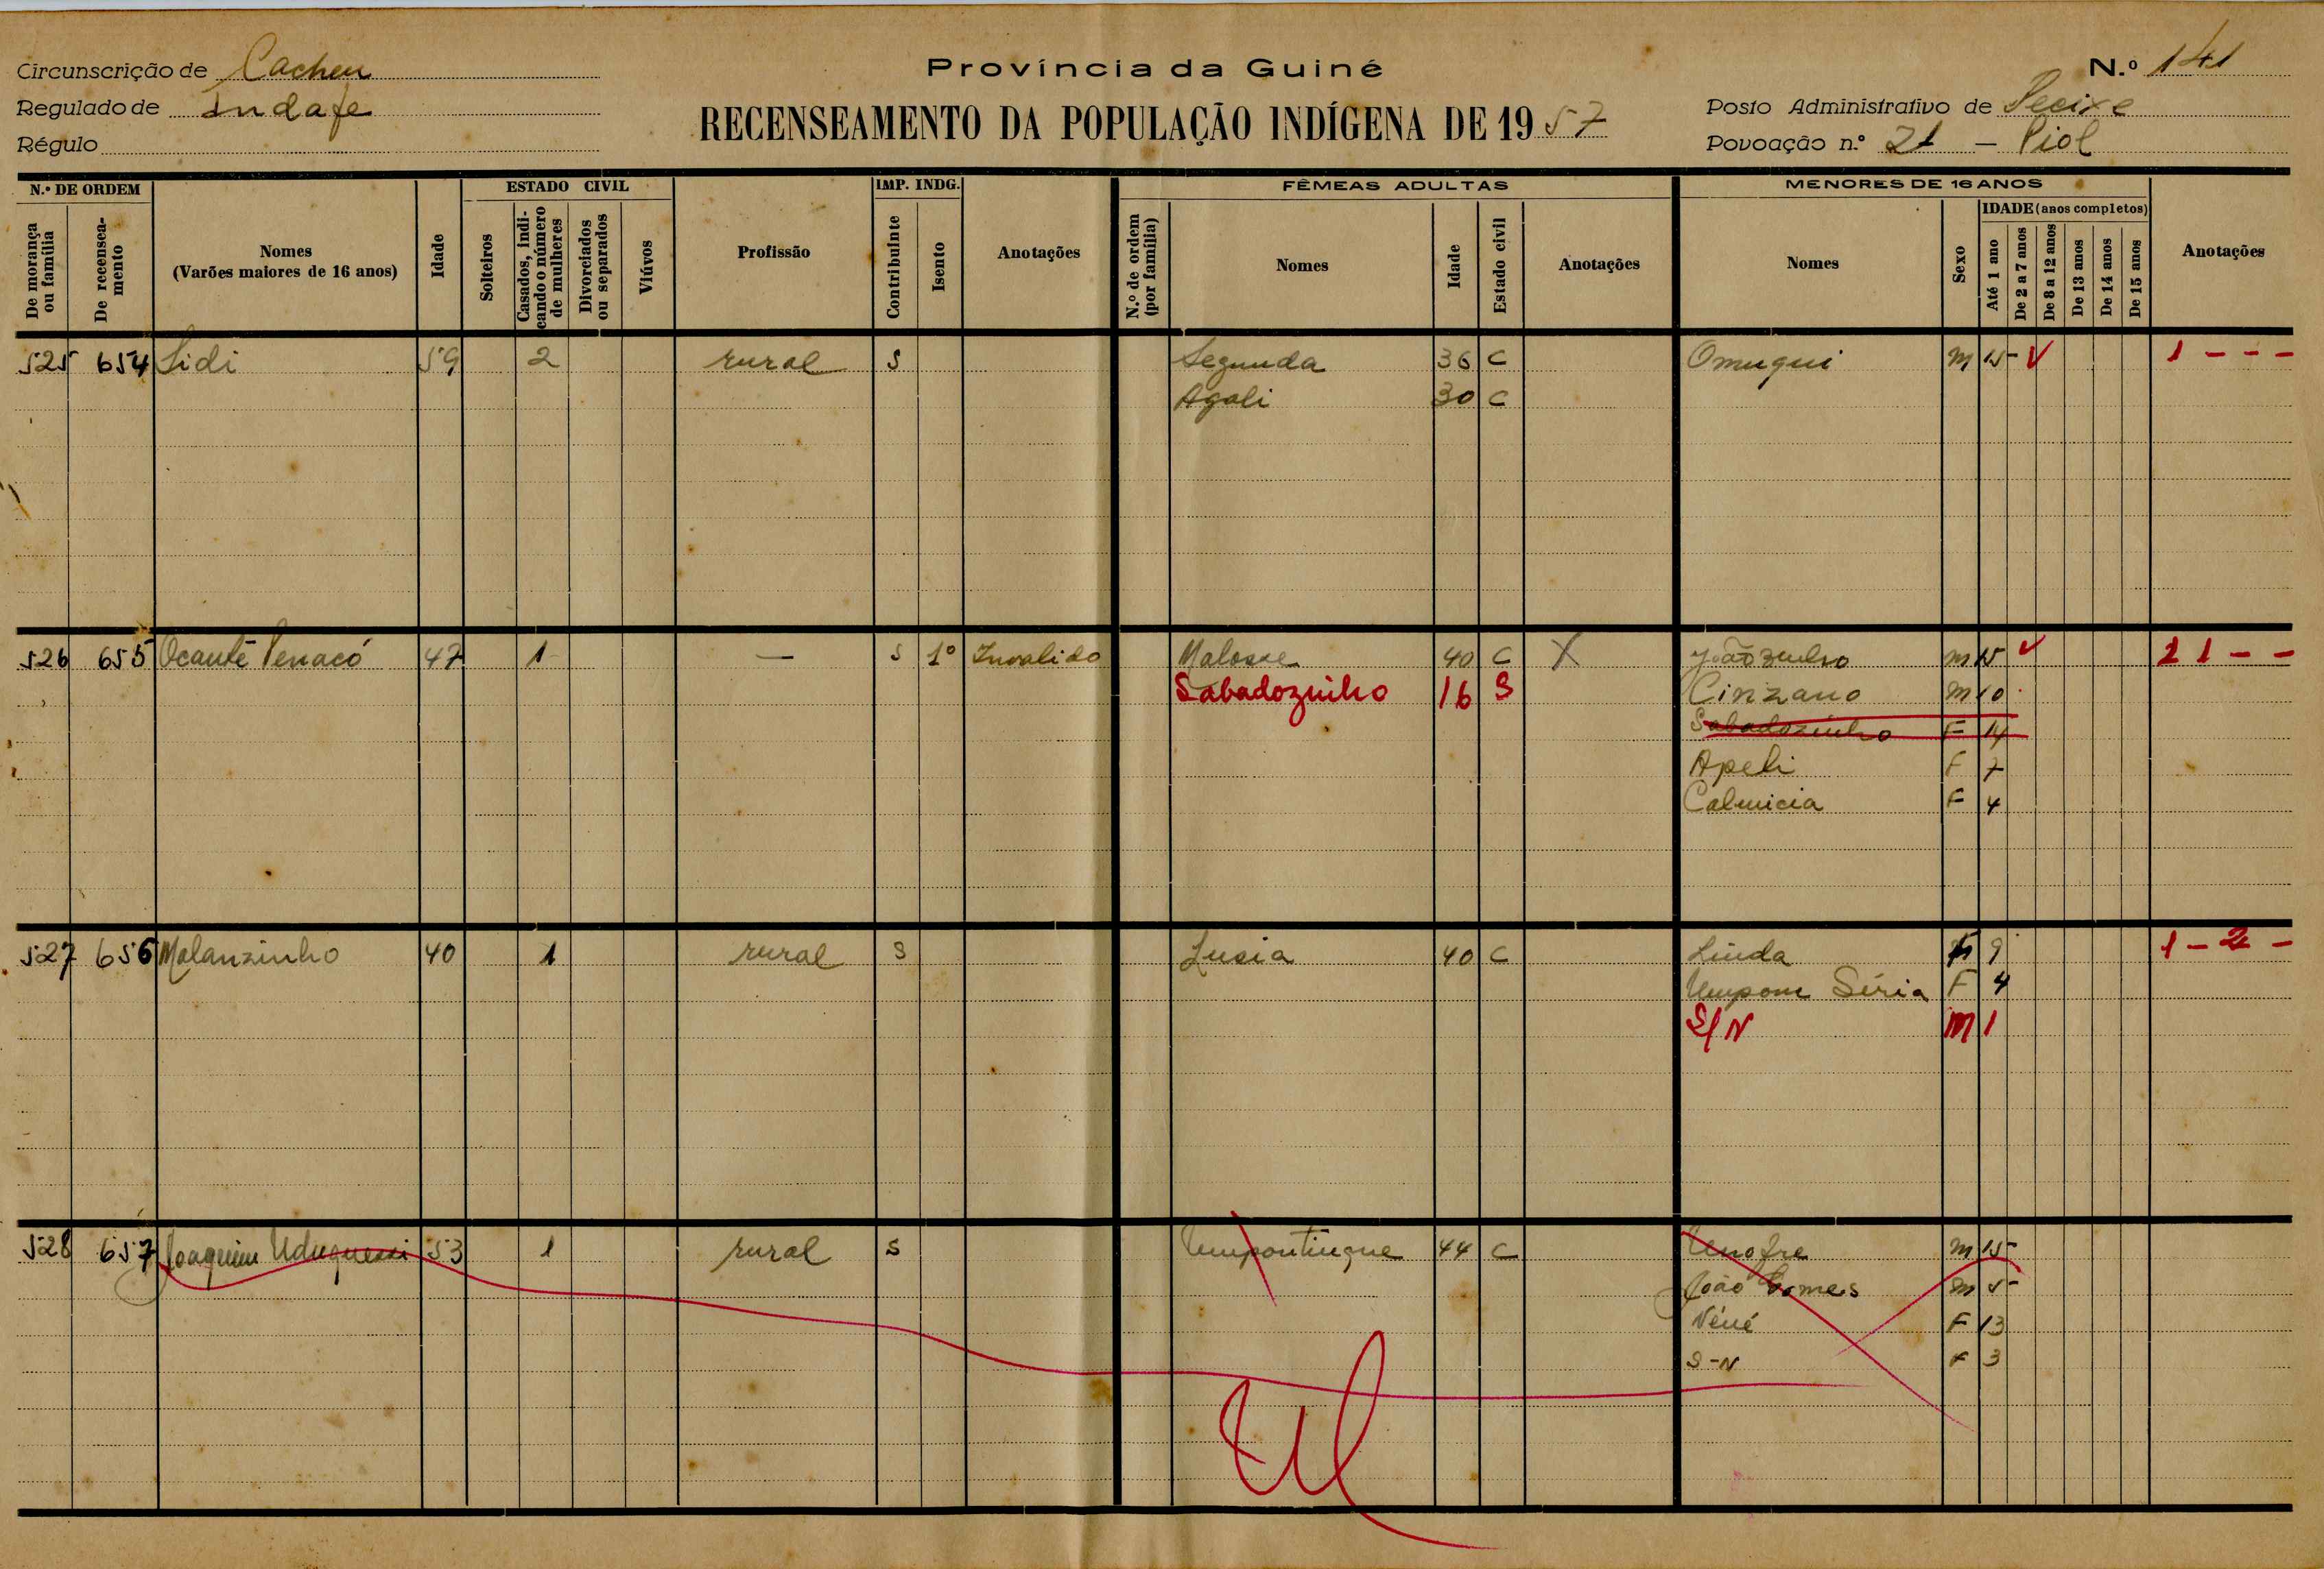 Circunscrição de Cacheu
Regulado de Indafe
Régulo
Província da Guiné
RECENSEAMENTO DA POPULAÇÃO INDÍGENA DE 1957
N.º 141
Posto Administrativo de Pecixe
Povoação n.º 21 – Piol
N.º DE ORDEM
De morança ou família
De recenseamento
Nomes
(Varões maiores de 16 anos)
Idade
ESTADO CIVIL
Solteiros
Casados, indicando o número de mulheres
Divorciados ou separados
Viúvos
Profissão
IMP. INDG.
Contribuinte
Isento
Anotações
FÊMEAS ADULTAS
N.º de ordem (por família)
Nomes
Idade
Estado civil
Anotações
MENORES DE 16 ANOS
Nomes
Sexo
IDADE (anos completos)
Até 1 ano
De 2 a 7 anos
De 8 a 12 anos
De 13 anos
De 14 anos
De 15 anos
Anotações
525 654 Sidi 59 2 rural S Segunda 36 C Omuqui M 15 1 - - -
Agali 30 C
526 655 Ocante Penacó 47 1 — S 1º Invalido Malosse 40 C X Joãozinho M 15 2 1 - -
Sabadozinho 16 S Cirizano M 10
Sabadozinho F 14
Apeli F 7
Calmicia F 4
527 656 Malanzinho 40 1 rural S Lusia 40 C Linda F 9 1 - 2 -
Umpom Séria F 4
S/N M 1
528 657 Joaquim 53 1 rural S Umpontingue 44 C Unofre M 15
João Gomes M 5
Néné F 13
S-N F 3